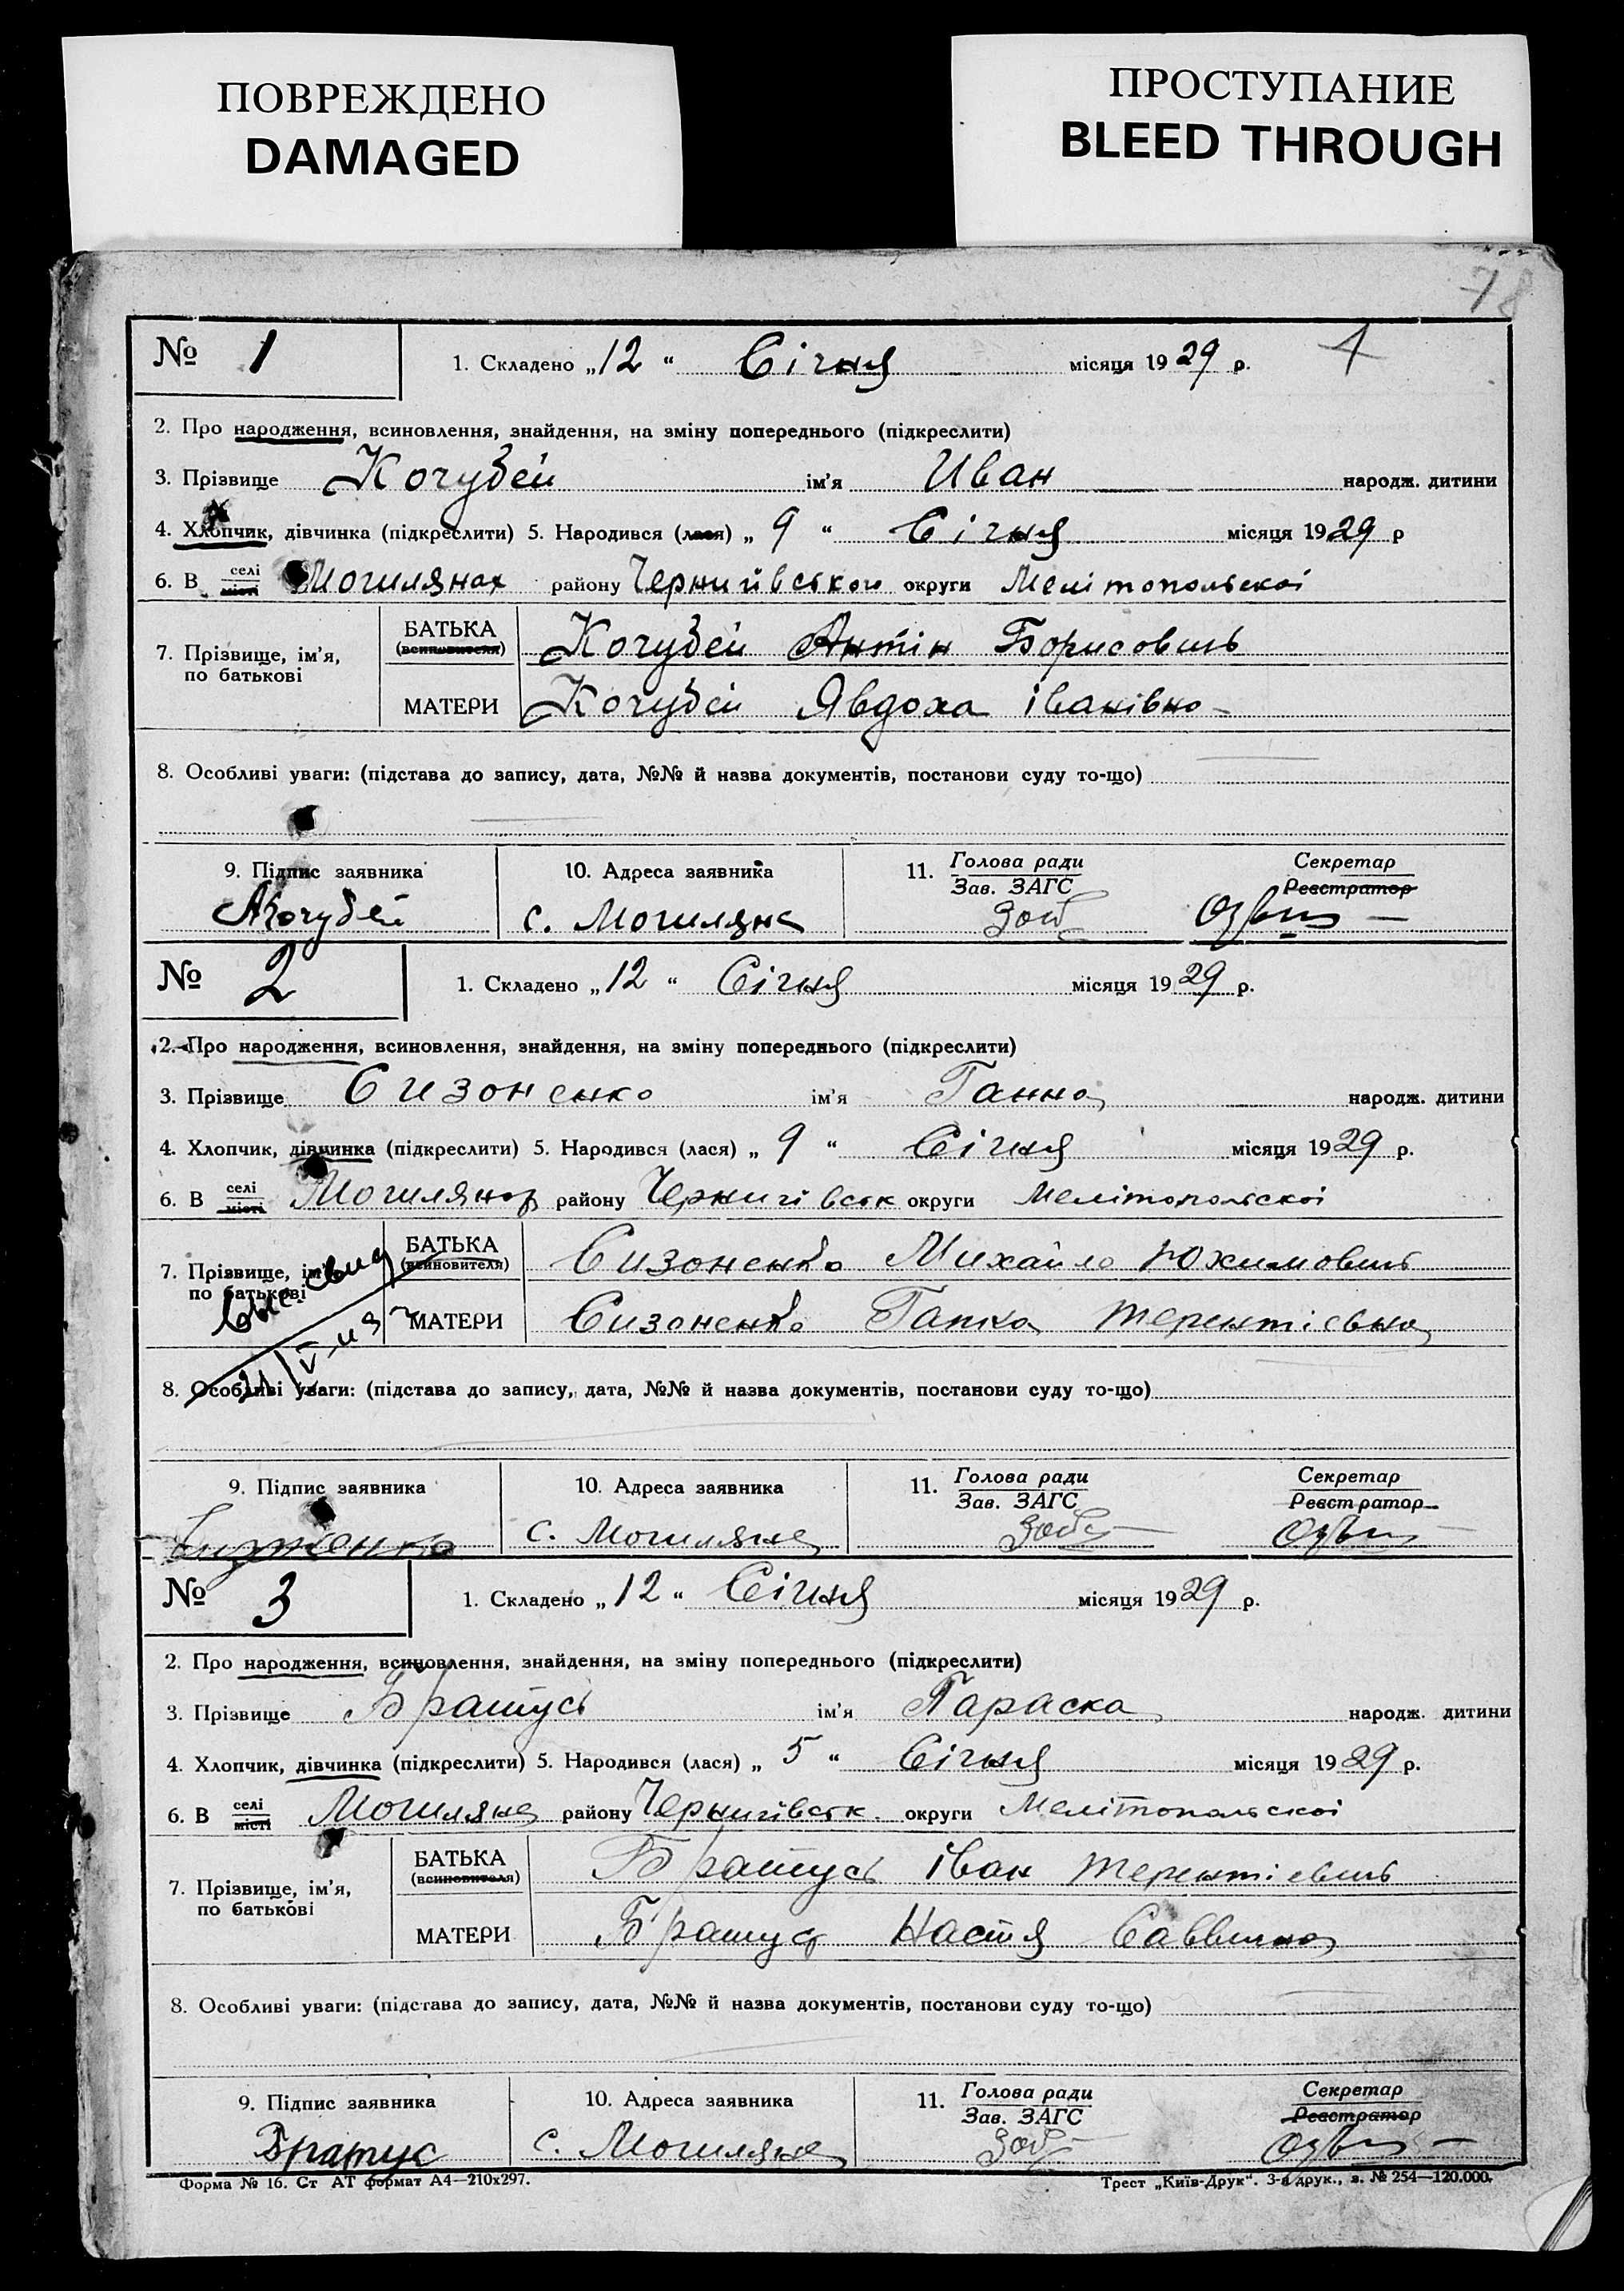 ПОВРЕЖДЕНО
DAMAGED
ПРОСТУПАНИЕ
BLEED THROUGH
78
№ 1 1. Складено „12 “ Січня місяця 1929 р. 1
2. Про народження, всиновлення, знайдення, на зміну попереднього (підкреслити)
3. Прізвище Кочубей ім'я Иван народж. дитини
4. Хлопчик, дівчинка (підкреслити) 5. Народився (лася) „ 9 “ Січня місяця 1929 р
6. В селі місті Могилянах району Чернигівського округи Мелітопольскоі
7. Прізвище, ім'я, по батькові
БАТЬКА (всиновителя) Кочубей Антін Борисовичь
МАТЕРИ Кочубей Явдоха іванівна
8. Особливі уваги: (підстава до запису, дата, №№ й назва документів, постанови суду то-що)
9. Підпис заявника 10. Адреса заявника 11. Голова ради Секретар
Зав. ЗАГС Реєстратор
АКочубей с. Могиляне
№ 2 1. Складено „12 “ Січня місяця 1929 р.
2. Про народження, всиновлення, знайдення, на зміну попереднього (підкреслити)
3. Прізвище Сизоненко ім'я Ганна народж. дитини
4. Хлопчик, дівчинка (підкреслити) 5. Народився (лася) „ 9 “ Січня місяця 1929 р.
6. В селі місті Могилянах району Чернигівськ округи Мелітопольскоі
7. Прізвище, ім'я, по батькові
БАТЬКА (всиновителя) Сизоненко Михайло Юхимовичь
МАТЕРИ Сизоненко Гапка Терентієвна
8. Особливі уваги: (підстава до запису, дата, №№ й назва документів, постанови суду то-що)
9. Підпис заявника 10. Адреса заявника 11. Голова ради Секретар
Зав. ЗАГС Реєстратор
Сизоненко с. Могиляне
№ 3 1. Складено „12 “ Січня місяця 1929 р.
2. Про народження, всиновлення, знайдення, на зміну попереднього (підкреслити)
3. Прізвище Братусь ім'я Параска народж. дитини
4. Хлопчик, дівчинка (підкреслити) 5. Народився (лася) „ 5 “ Січня місяця 1929 р.
6. В селі місті Могиляне району Чернигівськ. округи Мелітопольскоі
7. Прізвище, ім'я, по батькові
БАТЬКА (всиновителя) Братусь іван Терентієвичь
МАТЕРИ Братусь Настя Саввична
8. Особливі уваги: (підстава до запису, дата, №№ й назва документів, постанови суду то-що)
9. Підпис заявника 10. Адреса заявника 11. Голова ради Секретар
Зав. ЗАГС Реєстратор
Братус с. Могиляне
Форма № 16. Ст АТ формат А4—210х297. Трест „Київ-Друк“. 3-я друк., з. № 254—120.000.